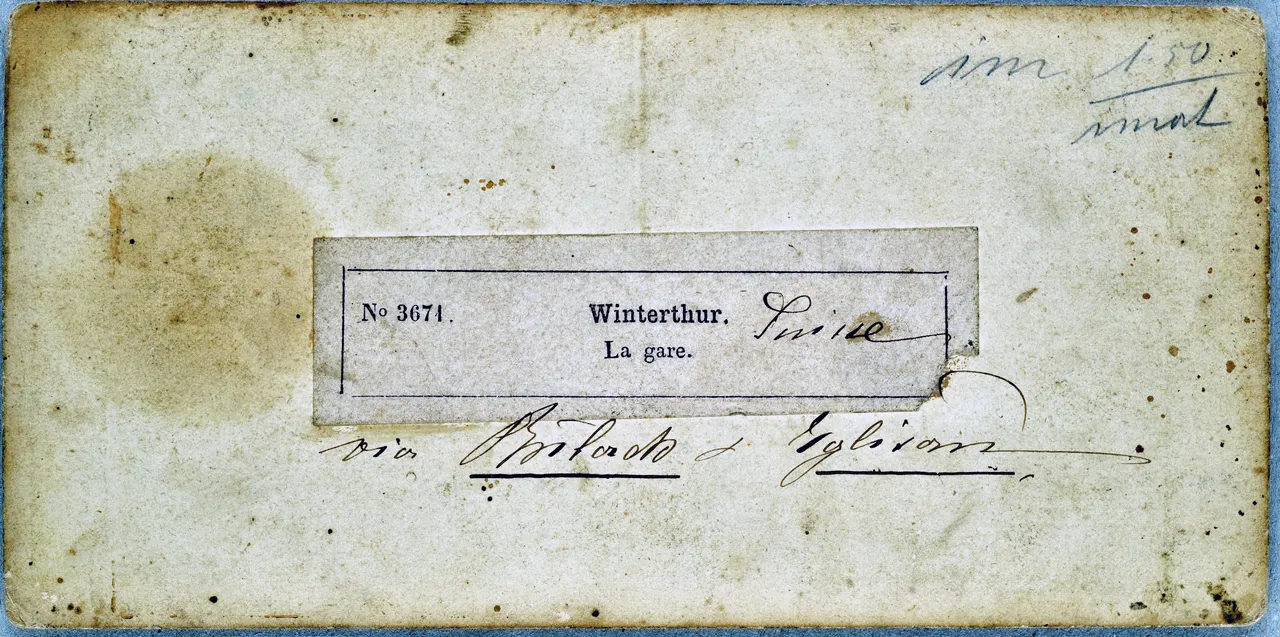 1.50
No 3671. Winterthur. Suisse
La gare.
via Bülach & Eglisau